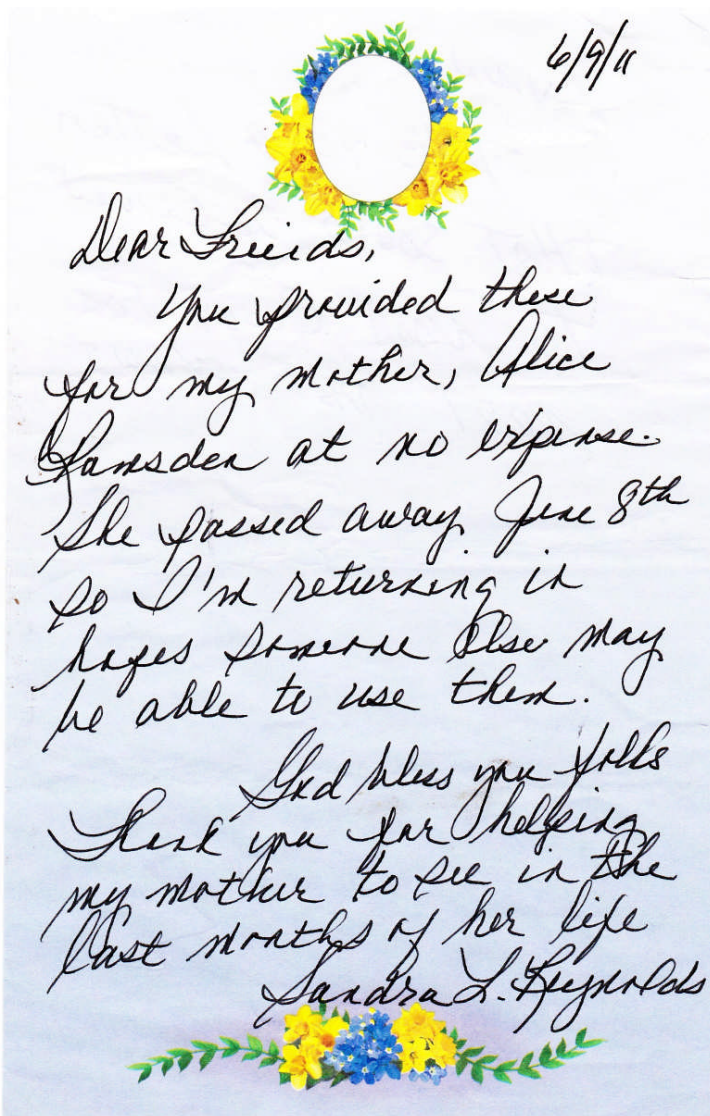 6/9/11
Dear Friends,
You provided these
for my mother, Alice
Ramsden at no expense.
She passed away June 8th
so I'm returning in
hopes someone else may
be able to use them.
God bless you folks
Thank you for helping
my mother to see in the
last months of her life
Sandra L. Reynolds